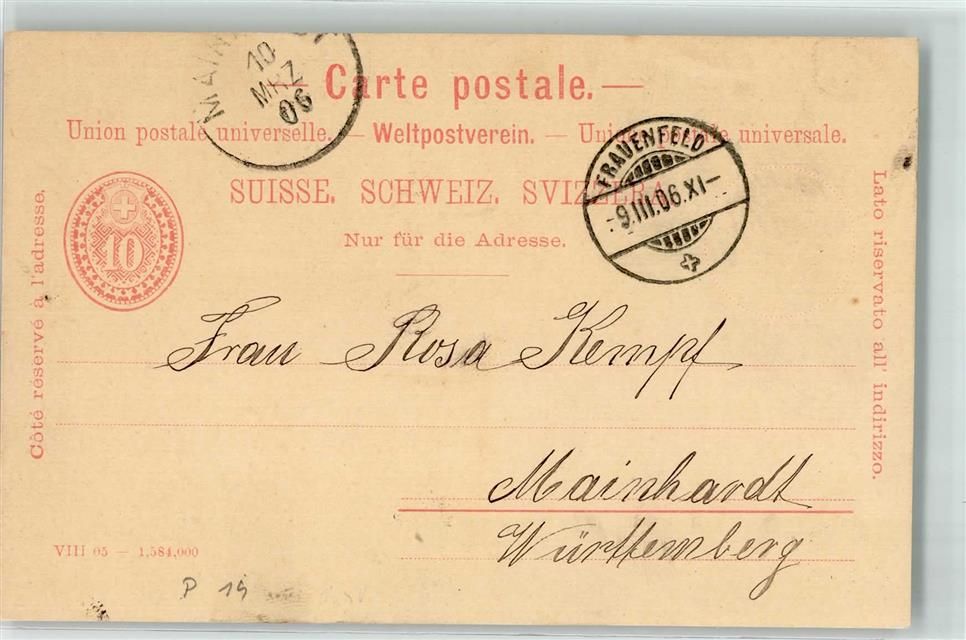 MAIN
10
MRZ
06
Carte postale.
Union postale universelle. — Weltpostverein. — Unione postale universale.
SUISSE. SCHWEIZ. SVIZZERA.
Nur für die Adresse.
FRAUENFELD
-9.III.06.XI-
10
Côté réservé à l'adresse.
Lato riservato all' indirizzo.
Frau Rosa Kempf
Mainhardt
Württemberg
VIII 05 — 1,584,000
P 19